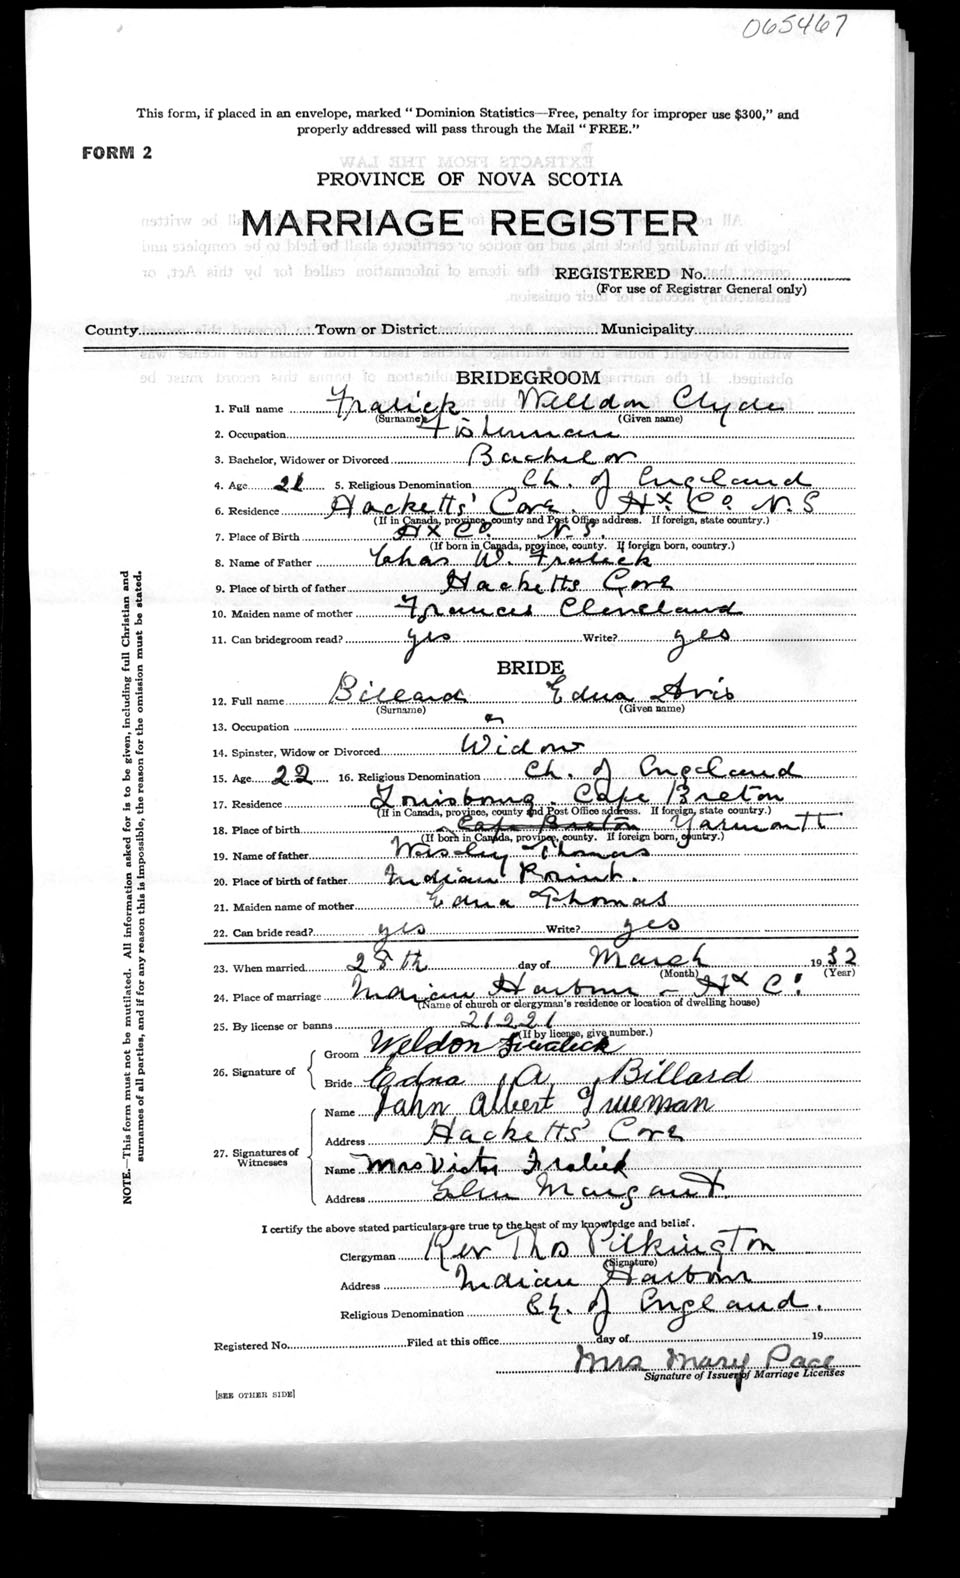 065467
This form, if placed in an envelope, marked "Dominion Statistics—Free, penalty for improper use $300," and
properly addressed will pass through the Mail "FREE."
FORM 2
PROVINCE OF NOVA SCOTIA
MARRIAGE REGISTER
REGISTERED No.
(For use of Registrar General only)
County Town or District Municipality
BRIDEGROOM
1. Full name Fralick Welldon Clyde
(Surname) (Given name)
2. Occupation Fisherman
3. Bachelor, Widower or Divorced Bachelor
4. Age 21 5. Religious Denomination Ch. of England
6. Residence Hacketts' Cove. Hx. Co. N.S
(If in Canada, province, county and Post Office address. If foreign, state country.)
7. Place of Birth Hx Co. N.S.
(If born in Canada, province, county. If foreign born, country.)
8. Name of Father Chas W. Fralick
9. Place of birth of father Hacketts Cove
10. Maiden name of mother Frances Cleveland
11. Can bridegroom read? yes Write? yes
BRIDE
12. Full name Billard Edna Avis
(Surname) (Given name)
13. Occupation
14. Spinster, Widow or Divorced Widow
15. Age 22 16. Religious Denomination Ch. of England
17. Residence Louisbourg. Cape Breton
(If in Canada, province, county and Post Office address. If foreign, state country.)
18. Place of birth Cape Breton Yarmouth
(If born in Canada, province, county. If foreign born, country.)
19. Name of father Wesley Thomas
20. Place of birth of father Indian Point.
21. Maiden name of mother Edna Thomas
22. Can bride read? yes Write? yes
23. When married 28th day of March 1932
(Month) (Year)
24. Place of marriage Indian Harbour - Hx Co.
(Name of church or clergyman's residence or location of dwelling house)
25. By license or banns 21221
(If by license, give number.)
26. Signature of
Groom Weldon Fralick
Bride Edna A Billard
27. Signatures of Witnesses
Name John Albert Trueman
Address Hacketts' Cove
Name Mrs Victor Fralick
Address Glen Margaret.
I certify the above stated particulars are true to the best of my knowledge and belief.
Clergyman Rev Thos Pilkington
(Signature)
Address Indian Harbour
Religious Denomination Ch. of England.
Registered No. Filed at this office day of 19
Mrs Mary Pace
Signature of Issuer of Marriage Licenses
[SEE OTHER SIDE]
NOTE.—This form must not be mutilated. All information asked for is to be given, including full Christian and
surnames of all parties, and if for any reason this is impossible, the reason for the omission must be stated.